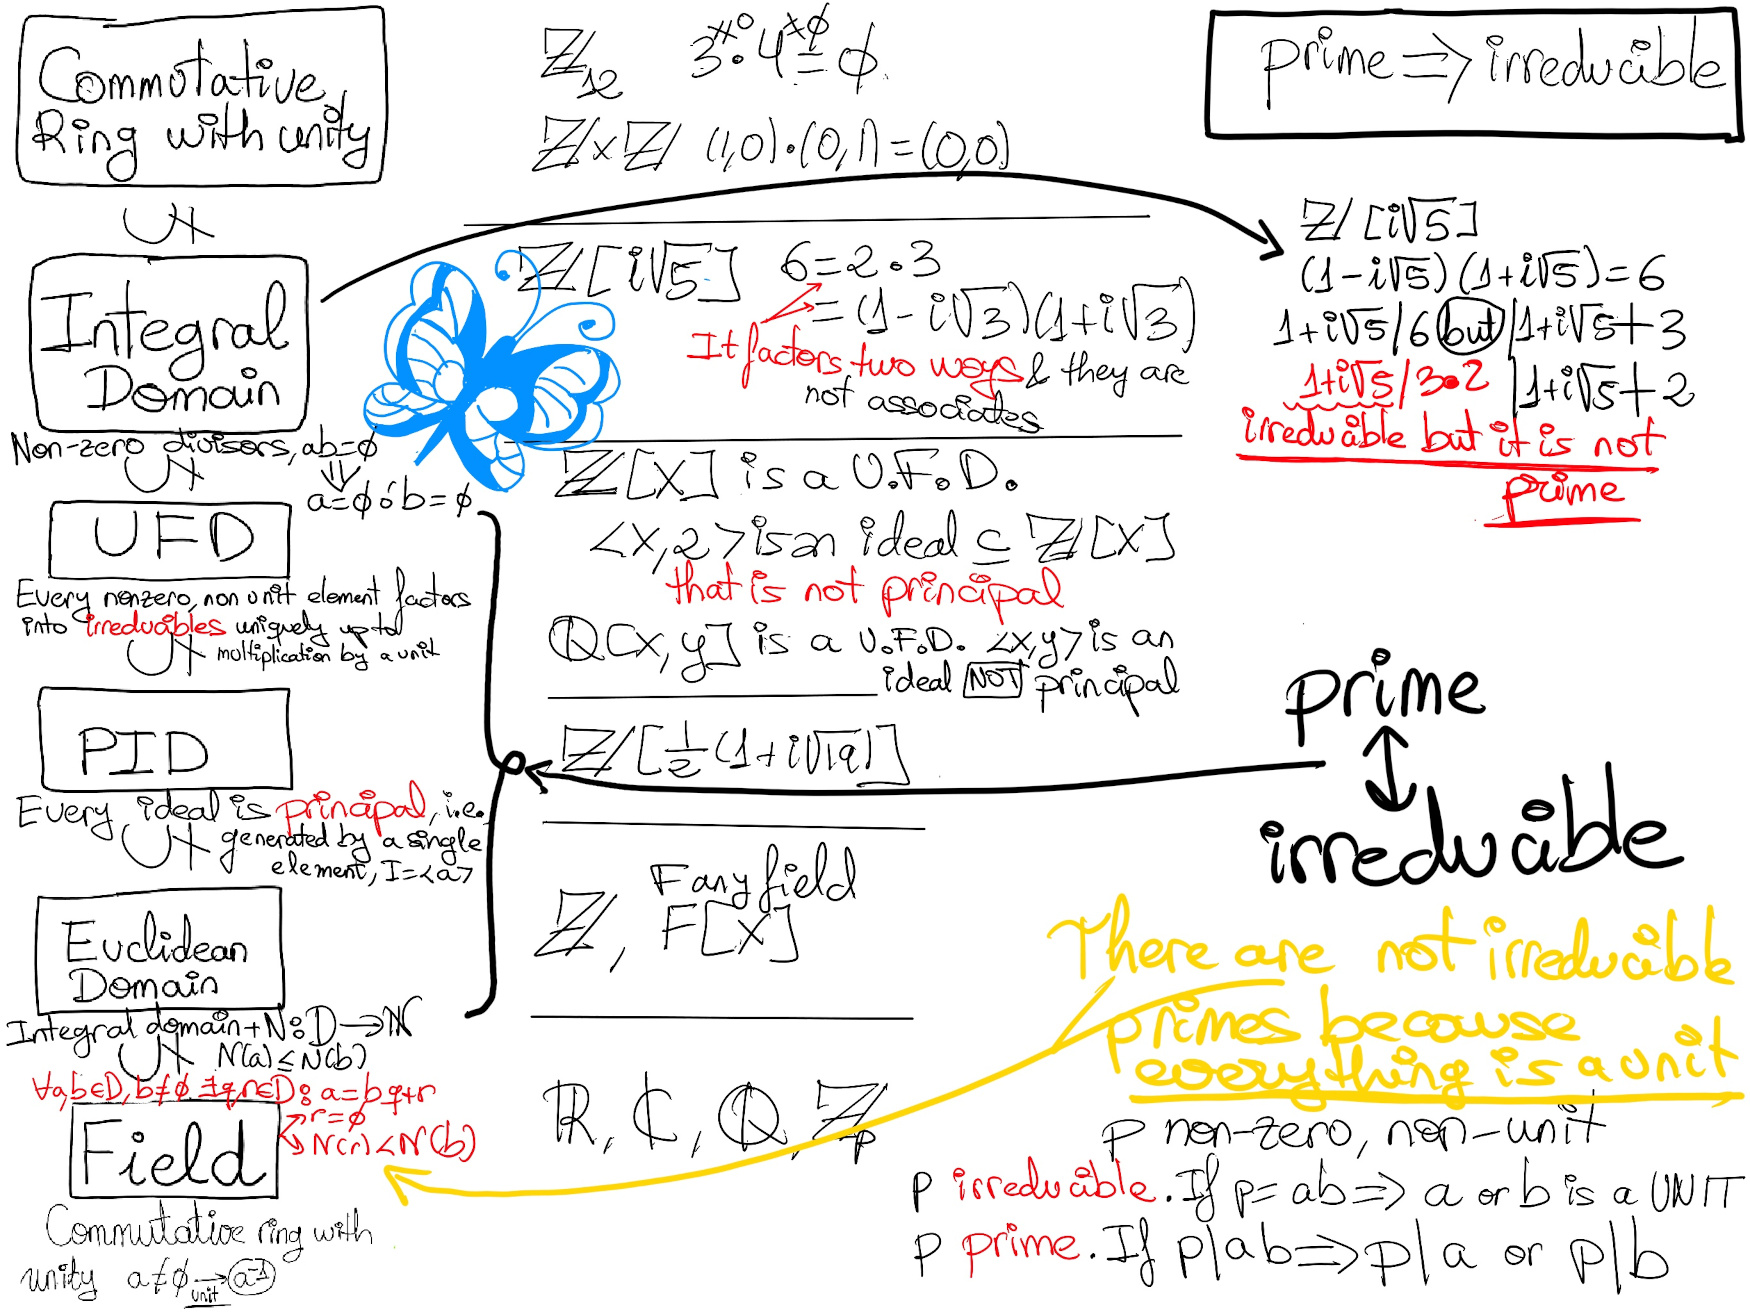 Commutative
Ring with unity
ℤ₁₂ 3≠0 · 4≠0 = 0
ℤ×ℤ (1,0)·(0,1)=(0,0)
prime ⟹ irreducible
⊊
Integral
Domain
Non-zero divisors, ab=0
⇓
a=0 ó b=0
ℤ[i√5] 6=2·3
=(1-i√3)(1+i√3)
It factors two ways & they are
not associates
ℤ[i√5]
(1-i√5)(1+i√5)=6
1+i√5/6 but 1+i√5∤3
1+i√5/3·2 1+i√5∤2
irreducible but it is not
prime
UFD
Every nonzero, non unit element factors
into irreducibles uniquely up to
multiplication by a unit
ℤ[x] is a U.F.D.
<x,2> is an ideal ⊆ ℤ[x]
that is not principal
ℚ[x,y] is a U.F.D. <x,y> is an
ideal NOT principal
PID
Every ideal is principal, i.e.,
generated by a single
element, I=<a>
ℤ[½(1+i√19)]
prime
↕
irreducible
Euclidean
Domain
Integral domain + N:D→ℕ
N(a)≤N(b)
∀a,b∈D, b≠0 ∃q,r∈D: a=bq+r
r=0
N(r)<N(b)
F any field
ℤ, F[x]
There are not irreducible
primes because
everything is a unit
Field
Commutative ring with
unity a≠0 → a-1
unit
ℝ, ℂ, ℚ, ℤp
p non-zero, non-unit
p irreducible. If p=ab ⟹ a or b is a UNIT
p prime. If p|ab ⟹ p|a or p|b